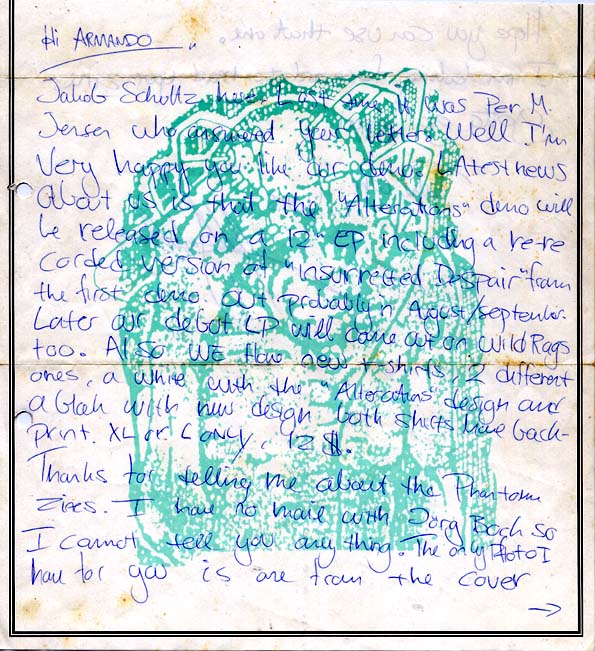 Hi ARMANDO
Jakob Schultz here. Last time it was Per M.
Jensen who answered your letters. Well I'm
Very happy you like our demo. LAtest news
about us is that the "Alterations" demo will
be released on a 12" EP including a re-re
corded version of "Insurrected Despair" from
the first demo. Out probably in August/september.
Later our debut LP will come out on Wild Rags
too. Also we have new t-shirts, 2 different
ones, a white with the "Alterations" design and
a black with new design both shirts have back-
print. XL or L ONLY, 12 $.
Thanks for telling me about the Phantom
Zines. I have no mail with Jörg Boch so
I cannot tell you anything. The only Photo I
have for you is are from the cover
→